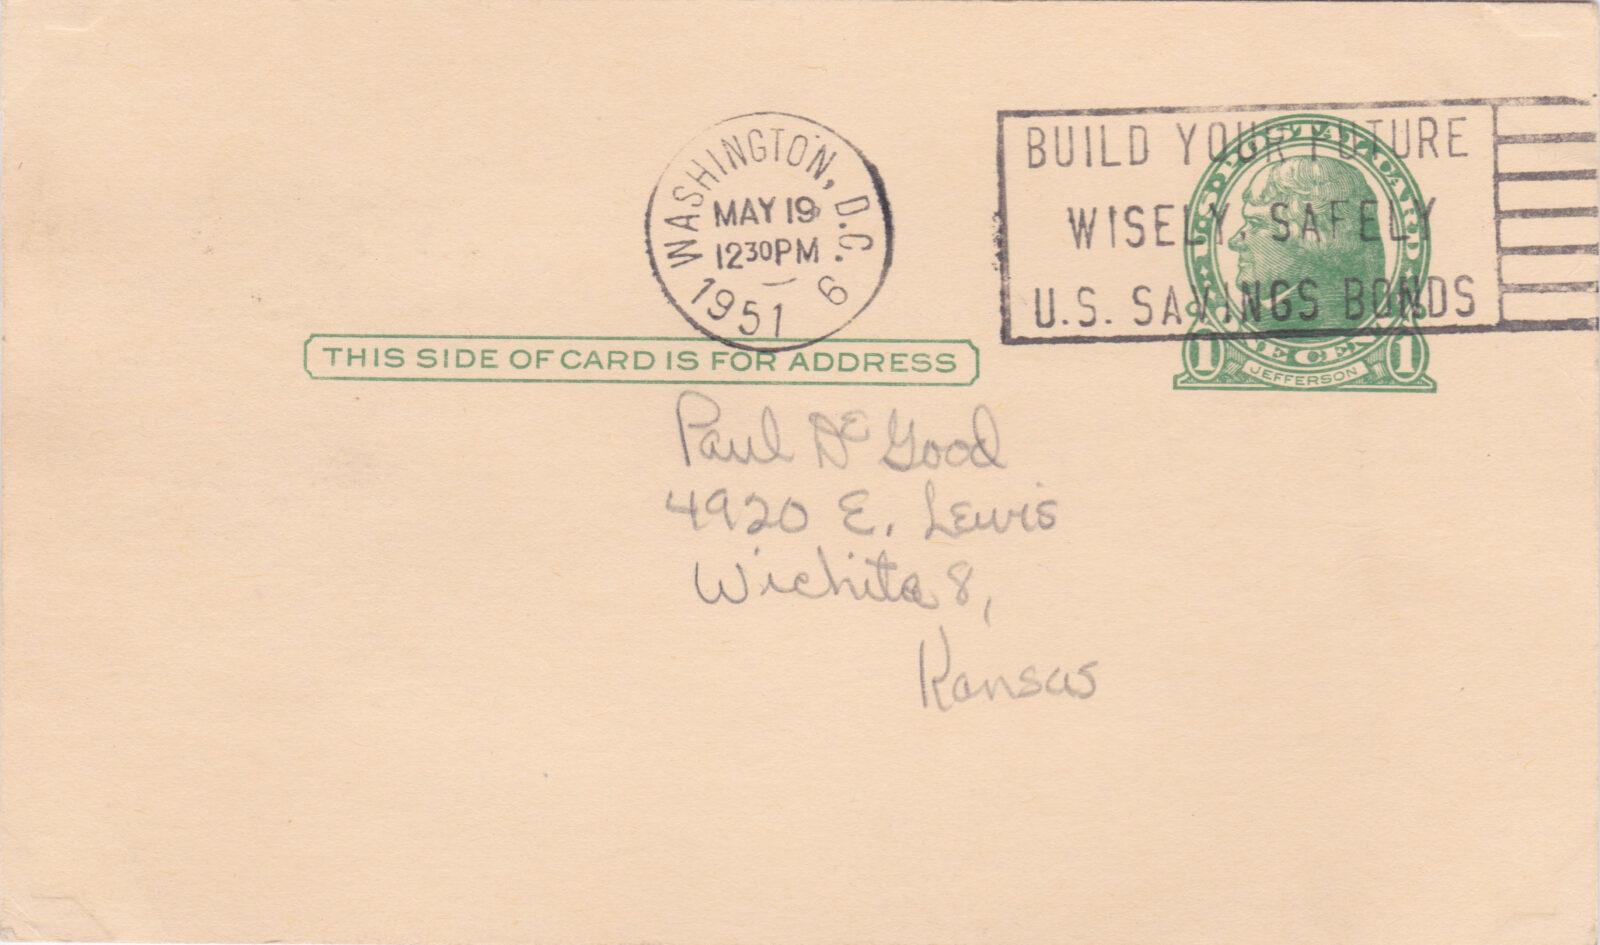 WASHINGTON, D.C. 6
MAY 19
12 30 PM
1951
BUILD YOUR FUTURE
WISELY, SAFELY
U.S. SAVINGS BONDS
U.S. POSTAL CARD
ONE CENT
1 JEFFERSON 1
THIS SIDE OF CARD IS FOR ADDRESS
Paul DeGood
4920 E. Lewis
Wichita 8,
Kansas